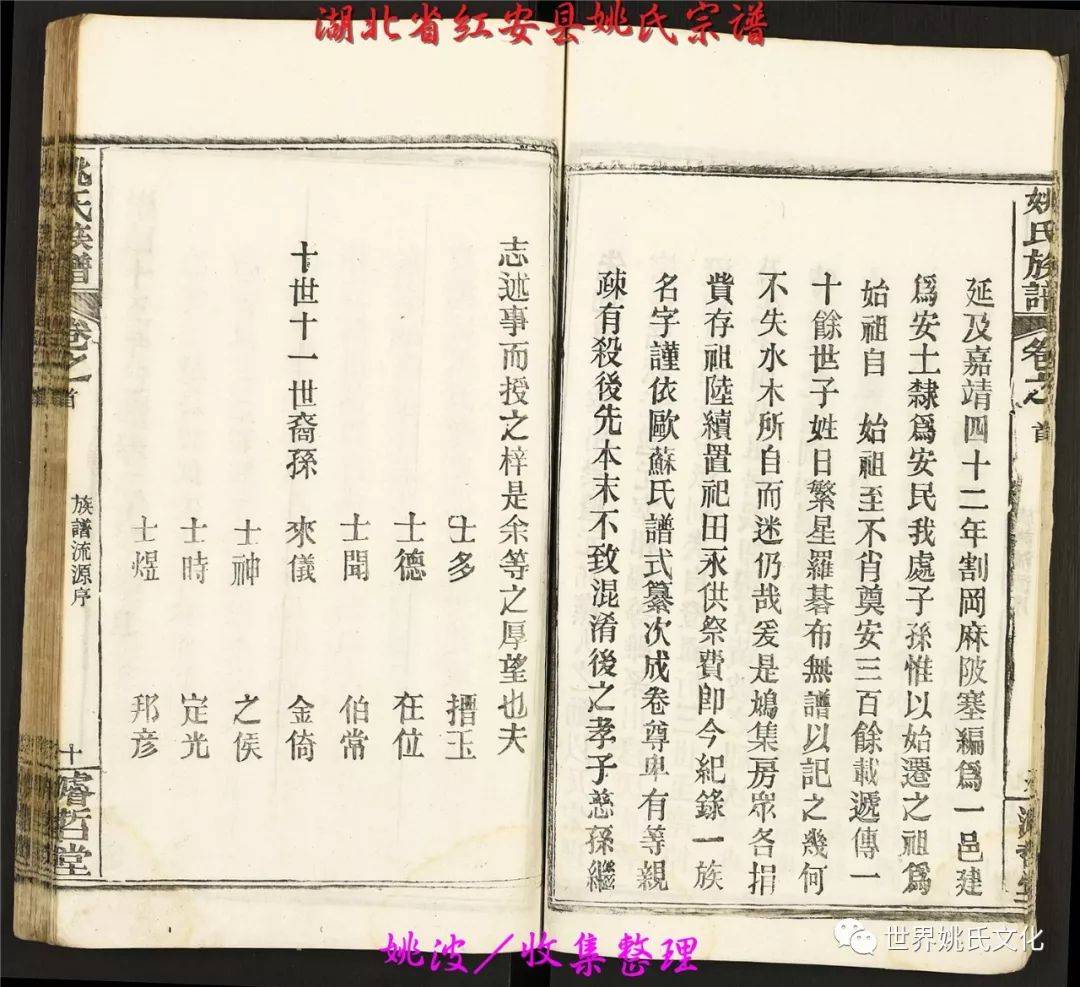 湖北省红安县姚氏宗谱
姚氏族譜
卷之
首
延及嘉靖四十二年割岡麻陂塞編爲一邑建
爲安土隸爲安民我處子孫惟以始遷之祖爲
始祖自 始祖至不肖奠安三百餘載遞傳一
十餘世子姓日繁星羅碁布無譜以記之幾何
不失水木所自而迷仍哉爰是鳩集房眾各捐
貲存祖陸續置祀田永供祭費即今紀錄一族
名字謹依歐蘇氏譜式纂次成卷尊卑有等親
疎有殺後先本末不致混淆後之孝子慈孫繼
志述事而授之梓是余等之厚望也夫
士多 搢玉
士德 在位
士聞 伯常
十世十一世裔孫 來儀 金倚
士神 之侯
士時 定光
士煜 邦彦
姚氏族譜
卷之
首
族譜流源序
十
濬哲堂
姚波／收集整理
世界姚氏文化